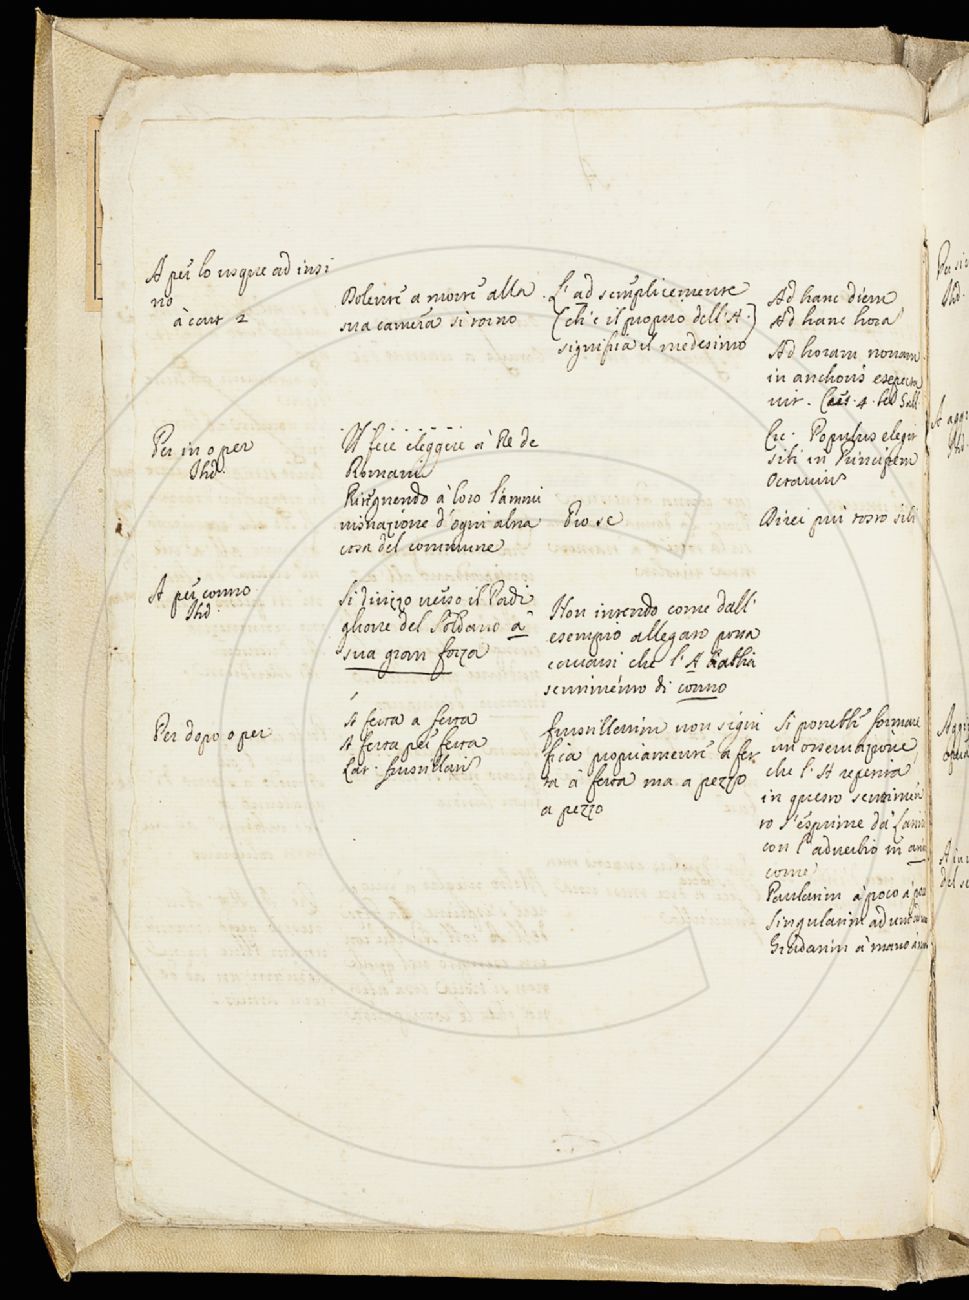 A per lo usque ad insi
no
à cart 2
Dolente a morte alla
sua camera si torno
L'ad semplicemente
(ch'è il proprio dell'A.)
significa il medesimo
Ad hanc diem
Ad hanc hora
Ad horam nonam
in anchoris expecta
vit. Caes. 4. bel Gall
Per in o per
Ibid.
Si fece eleggere à Re de
Romani
Ritenendo à loro l'ammi
nistrazione d'ogni altra
cosa del commune
Pro se
Cic. Populus elegit
sibi in Principem
Octavium
Direi piu tosto sibi
A per contro
Ibid.
Si dirizzo verso il Padi
glione del Soldano à
sua gran forza
Non intendo come dall'
esempio allegato possa
cavarsi che l'A habbia
sentimento di contro
Per dopo o per
A fetta a fetta
A fetta per fetta
Lat. frustillatim
frustillatim non signi
fica propriamente à fet
ta à fetta ma a pezzo
a pezzo
Si potrebbe formare
un'osservazione
che l'A repetita
in questo sentimen
to s'esprime da Latin
con l'adverbio in
come
Paulatim à poco à poco
Singulatim ad uno
à mano à mano